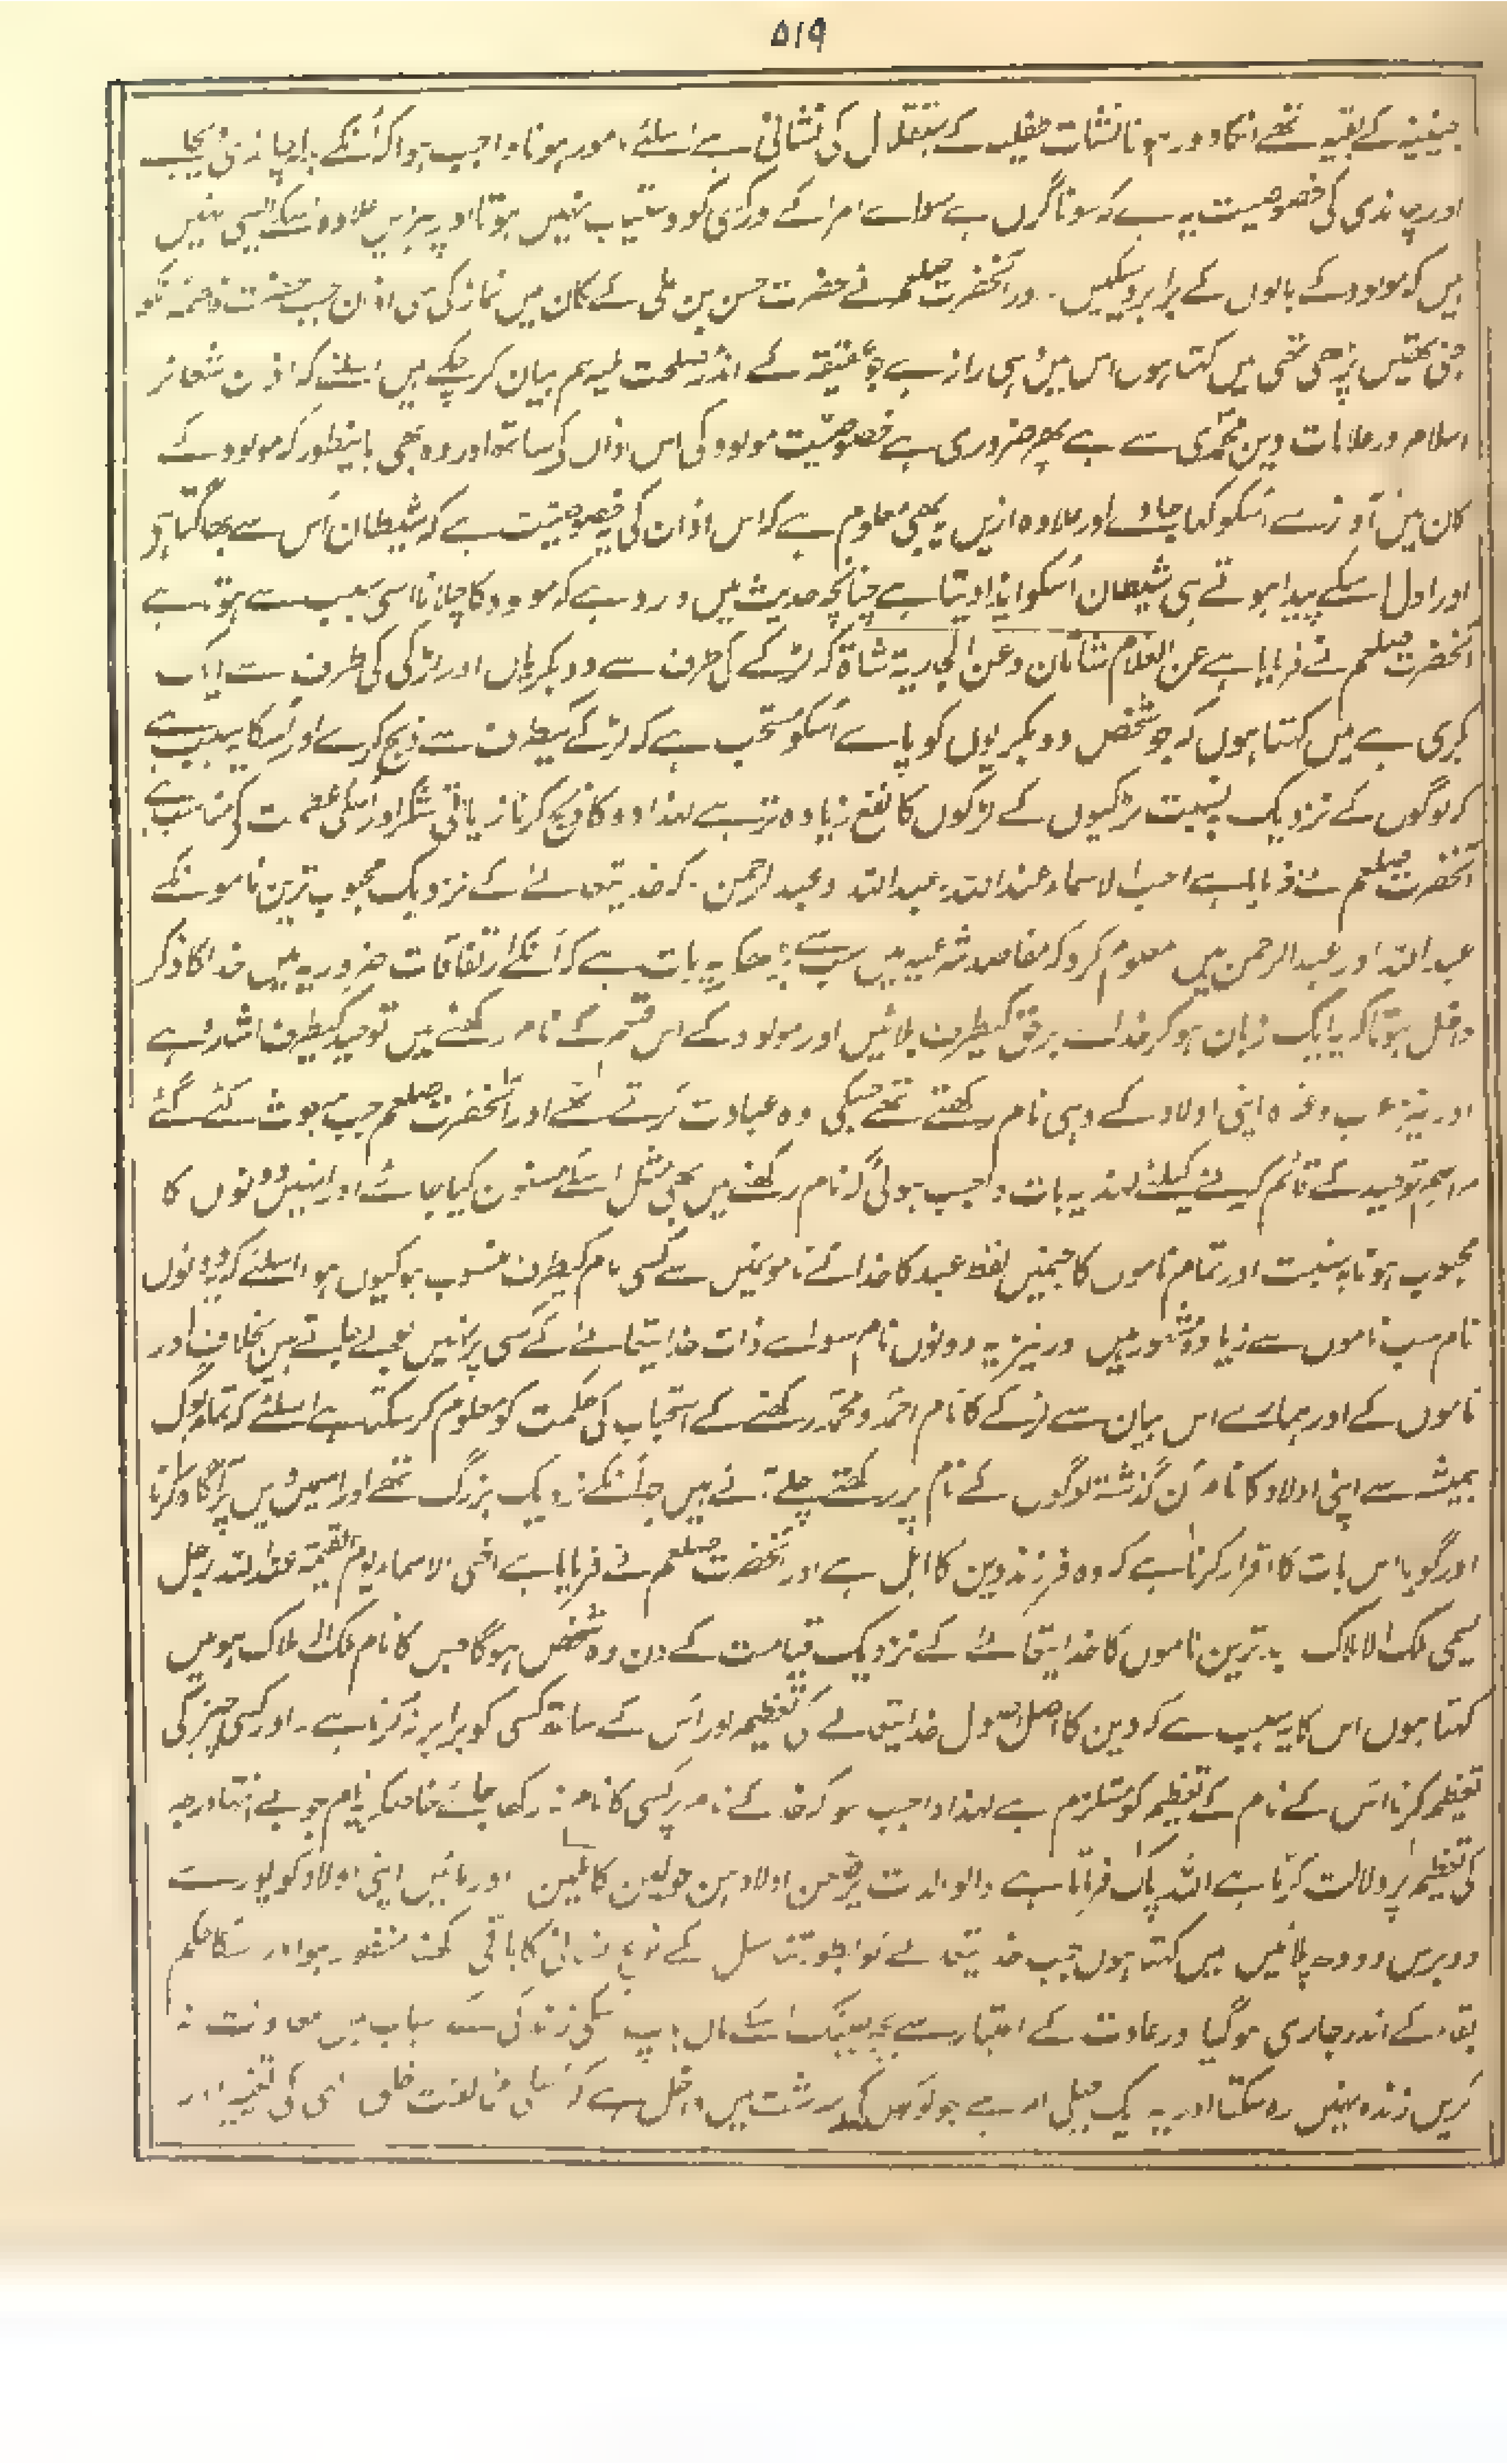 ۵۱۹
جنینیہ کے بقیہ تھے انکا دور ہونا نشات طفلیہ کے استقلال کی نشانی ہے اسلئے مامور ہونا واجب ہوا کہ اُنکے برابر چاندی دیجاے
اور چاندی کی خصوصیت یہ ہے کہ سونا گراں ہے سواے امرا کے اور کسی کو دستیاب نہیں ہوتا اور چیزیں علاوہ اسکے ایسی نہیں
ہیں کہ مولود کے بالوں کے برابر ہوسکیں۔ اور آنحضرت صلعم نے حضرت حسن بن علی کے کان میں نماز کی سی اذان جب حضرت فاطمہ نے انکو
جنی تھیں پڑھی تھی میں کہتا ہوں اس میں وہی راز ہے جو عقیقہ کے اندر مصلحت ملیہ ہم بیان کرچکے ہیں اسلئے کہ اذان شعائر
اسلام اور علامات دین محمدی سے ہے پھر ضروری ہے خصوصیت مولود کی اس اذاں کی ساتھ اور وہ بھی باینطور کہ مولود کے
کان میں آواز سے اسکو کہا جاوے اور علاوہ ازیں یہ بھی معلوم ہے کہ اس اذان کی یہ خصوصیت ہے کہ شیطان اُس سے بھاگتا ہے
اور اول اسکے پیدا ہوتے ہی شیطان اُسکو ایذا دیتا ہے چنانچہ حدیث میں وارد ہے کہ مولود کا چلانا اسی سبب سے ہوتا ہے
آنحضرت صلعم نے فرمایا ہے عن الغلام شاتان وعن الجاریۃ شاۃ کہ لڑکے کی طرف سے دو بکریاں اور لڑکی کی طرف سے ایک
بکری ہے میں کہتا ہوں کہ جو شخص دو بکریوں کو پاے اُسکو مستحب ہے کہ لڑکے کیطرف سے ذبح کرے اور اُسکا یہ سبب ہے
کہ لوگوں کے نزدیک بہ نسبت لڑکیوں کے لڑکوں کا نفع زیادہ تر ہے لہذا دو کا ذبح کرنا زیادتی شکر اور اُسکی عظمت کی مناسب ہے
آنحضرت صلعم نے فرمایا ہے احب الاسماء عند اللہ عبد اللہ وعبد الرحمن۔ کہ خدایتعالےٰ کے نزدیک محبوب ترین ناموں کے
عبد اللہ اور عبد الرحمن ہیں معلوم کرو کہ مقاصد شرعیہ میں سب سے بڑھکر یہ بات ہے کہ اُنکے ارتفاقات ضروریہ میں خدا کا ذکر
داخل ہو تاکہ یہ ایک زبان ہوکر خداے برحق کیطرف بلائیں اور مولود کے اس قسم کے نام رکھنے میں توحید کیطرف اشارہ ہے
اور نیز عرب وغیرہ اپنی اولاد کے وہی نام رکھتے تھے جسکی وہ عبادت کرتے تھے اور آنحضرت صلعم جب مبعوث کئے گئے
مراسم توحید کے قائم کرنے کیلئے لہذا یہ بات واجب ہوئی کہ نام رکھنے میں بھی مثل اسکے مسنون کیا جائے اور انہیں دونوں کا
محبوب ہونا بہ نسبت اور تمام ناموں کا جنمیں لفظ عبد کا خدا کے ناموں میں سے کسی نام کیطرف منسوب ہو کیوں ہوا اسلئے کہ یہ دونوں
نام سب ناموں سے زیادہ مشہور ہیں اور نیز یہ دونوں نام سواے ذات خدایتعالےٰ کے کسی پر نہیں بولے جاتے ہیں بخلاف اور
ناموں کے اور ہمارے اس بیان سے لڑکے کا نام احمد ومحمد رکھنے کے استحباب کی حکمت کو معلوم کرسکتا ہے اسلئے کہ تمام لوگ
ہمیشہ سے اپنی اولاد کا نام اُن گذشتہ لوگوں کے نام پر رکھتے چلے آئے ہیں جو اُنکے نزدیک بزرگ تھے اور اسمیں دین پر آگاہ کرنا
اور گویا اس بات کا اقرار کرنا ہے کہ وہ فرزند دین کا اہل ہے اور آنحضرت صلعم نے فرمایا ہے اخنی الاسماء یوم القیمۃ عند اللہ رجل
یسمی ملک الاملاک بدترین ناموں کا خدایتعالےٰ کے نزدیک قیامت کے دن وہ شخص ہوگا جس کا نام ملک الاملاک ہو میں
کہتا ہوں اس کا یہ سبب ہے کہ دین کا اصل اصول خدایتعالےٰ کی تعظیم اور اُس کے ساتھ کسی کو برابر نہ کرنا ہے۔ اور کسی چیز کی
تعظیم کرنا اُس کے نام کے تعظیم کو مستلزم ہے لہذا واجب ہوا کہ خدا کے نام پر کسی کا نام نہ رکھا جائے خاصکر یہ نام جو بے انتہا درجہ
کی تعظیم پر دلالت کرتا ہے اللہ پاک فرماتا ہے والوالدات یرضعن اولادہن حولین کاملین اور مائیں اپنی اولاد کو پورے
دو برس دودھ پلائیں میں کہتا ہوں جب خدایتعالےٰ کو بطور تناسل کے نوع انسانی کا باقی رکھنا منظور ہوا اور اسکا حکم
بقاء کے اندر جاری ہوگیا اور عادت کے اعتبار سے بچہ بیشک اسکے ماں باپ اسکی زندگی کے اسباب میں معاونت نہ
کریں زندہ نہیں رہ سکتا اور یہ ایک جبلی امر ہے جو لوگوں کی سرشت میں داخل ہے کہ اسکی مخالفت خلق الٰہی کی تغییر اور